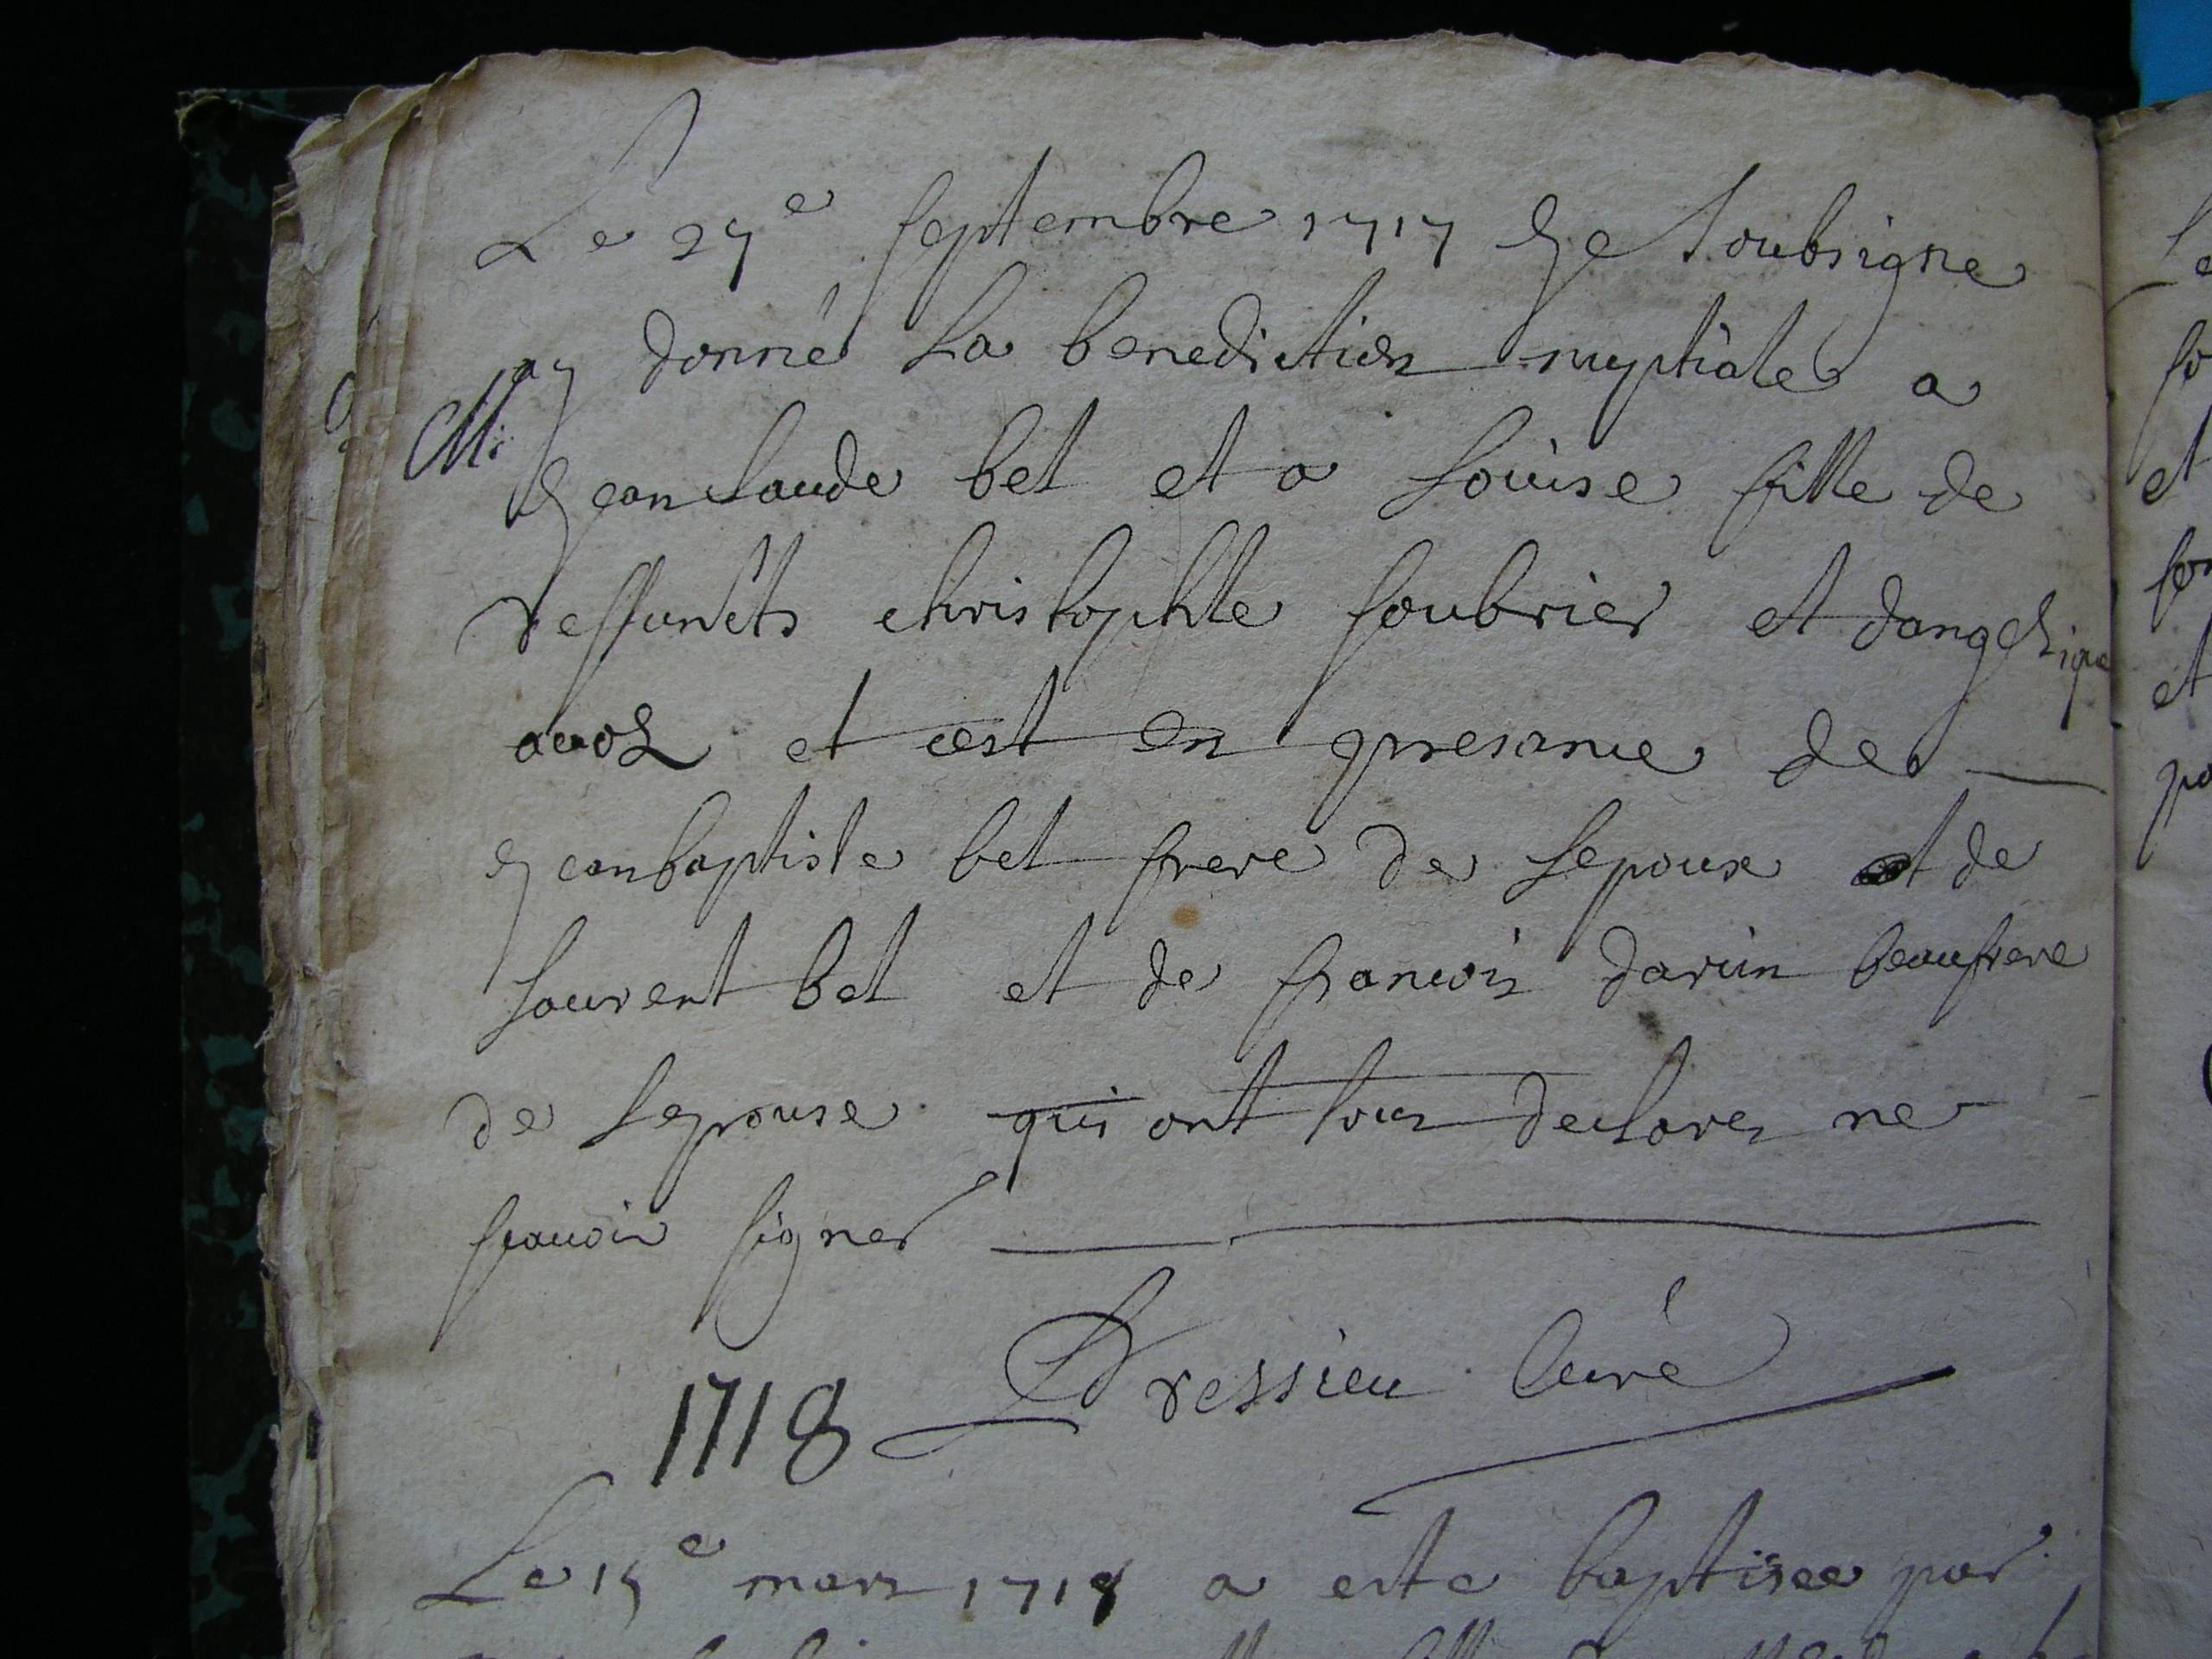 Le 27e septembre 1717 Je Soubsigne
Mi ay donné La benediction nuptiale a
Jean claude bet et a Loüise fille de
deffuncts christophle foubrier et dangelique
auol et cest en presence de
Jean baptiste bet frere de Lepoux et de
Laurent bet et de francois darein beaufrere
de Lepouse qui ont tous declares ne
scavoir signer
Dressieu Curé
1718
Le 15e mars 1718 a este baptisee par